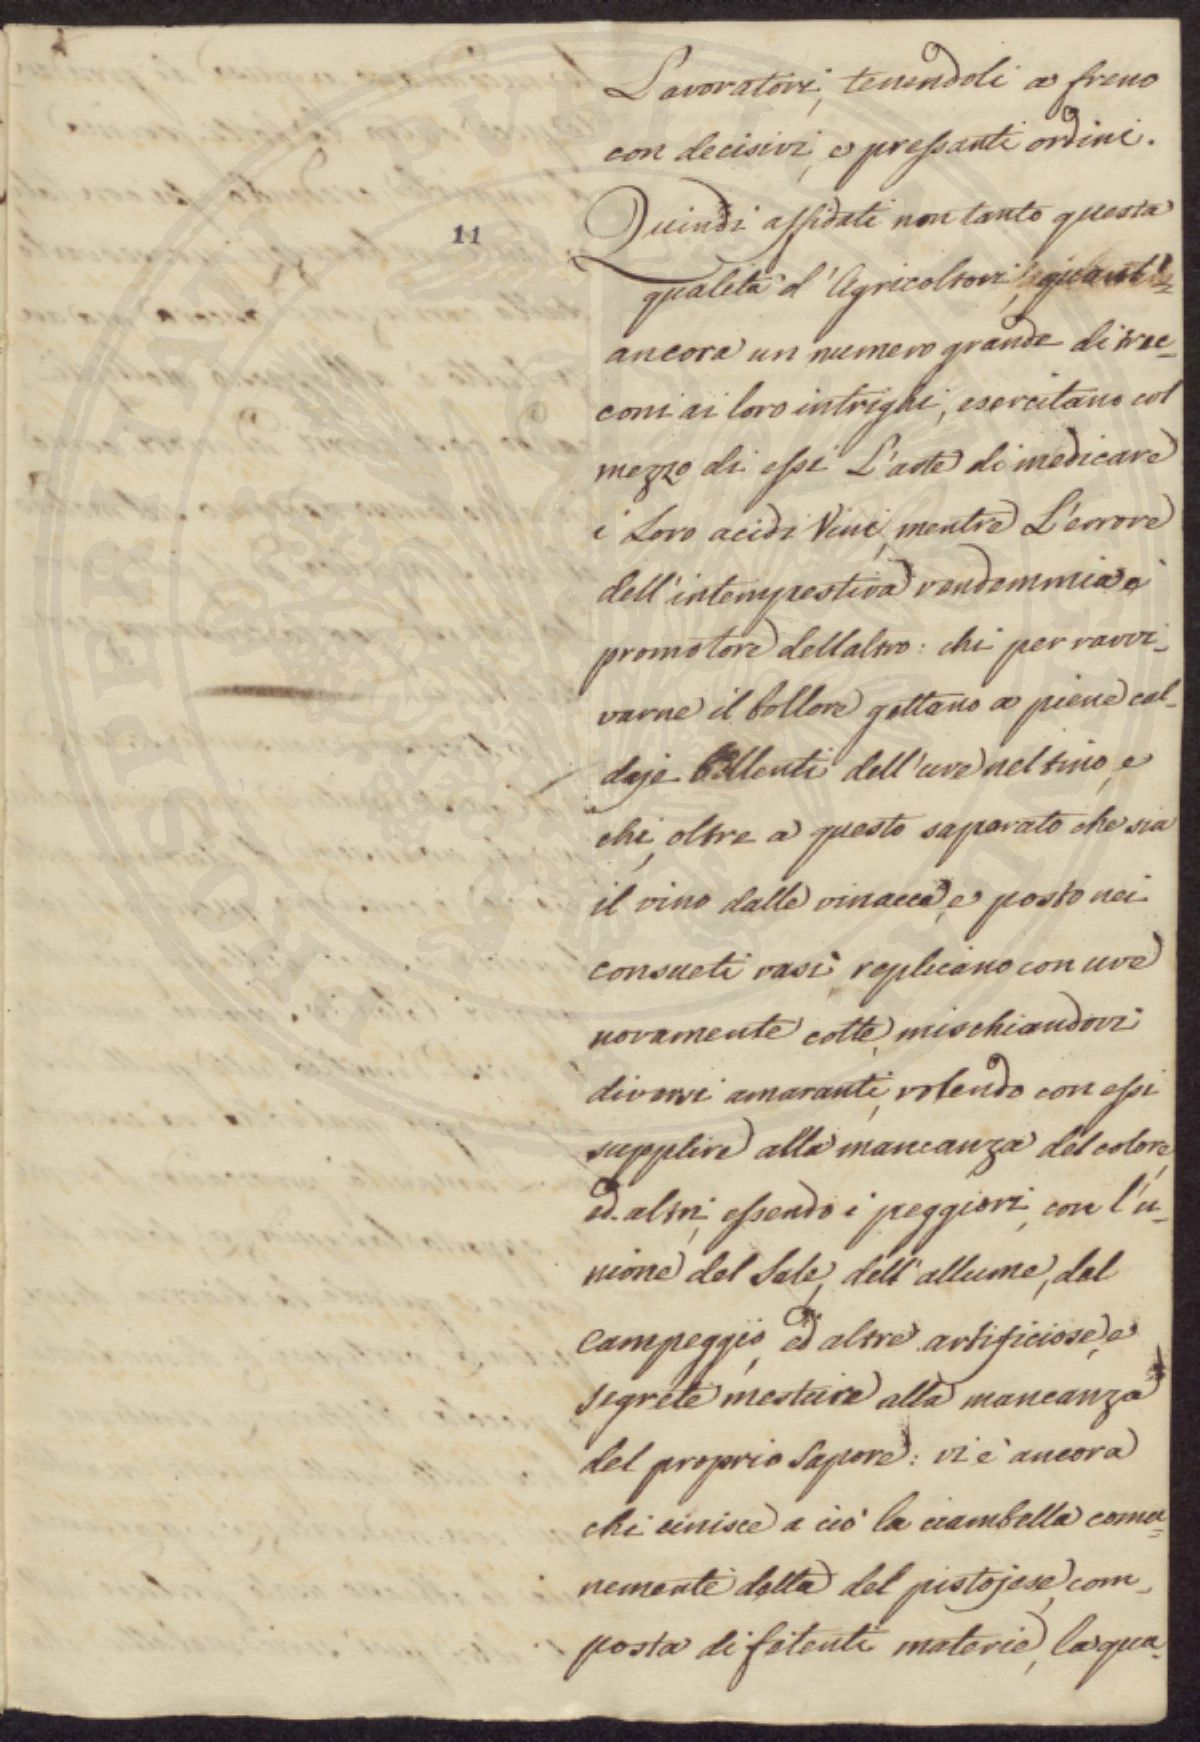 Lavoratori, tenendoli a freno
con decisivi, e pressanti ordini.
11
Quindi affidati non tanto questa
qualità d'Agricoltori,
ancora un numero grande di trec=
coni ai loro intrighi, esercitano col
mezzo di essi L'arte di medicare
i Loro acidi Vini, mentre L'errore
dell'intempestiva vendemmia è
promotore dell altro: chi per ravvi=
varne il bollore gettano a piene cal=
daje bollenti dell'uve nel tino, e
chi, oltre a questo saparato che sia
il vino dalle vinacce, e posto nei
consueti vasi replicano con uve
novamente cotte, mischiandovi
diversi amaranti, volendo con essi
supplire alla mancanza del colore,
ed altri, essendo i peggiori, con l'u=
nione del Sale, dell'allume, del
Campeggio, ed altre artificiose, e
segrete mesture alla mancanza
del proprio Sapore: vi è ancora
chi unisce a ciò la ciambella comu=
nemente detta del pistojese, com=
posta di fetenti materie, la qua=
PROSPERITATI PUBLICAE